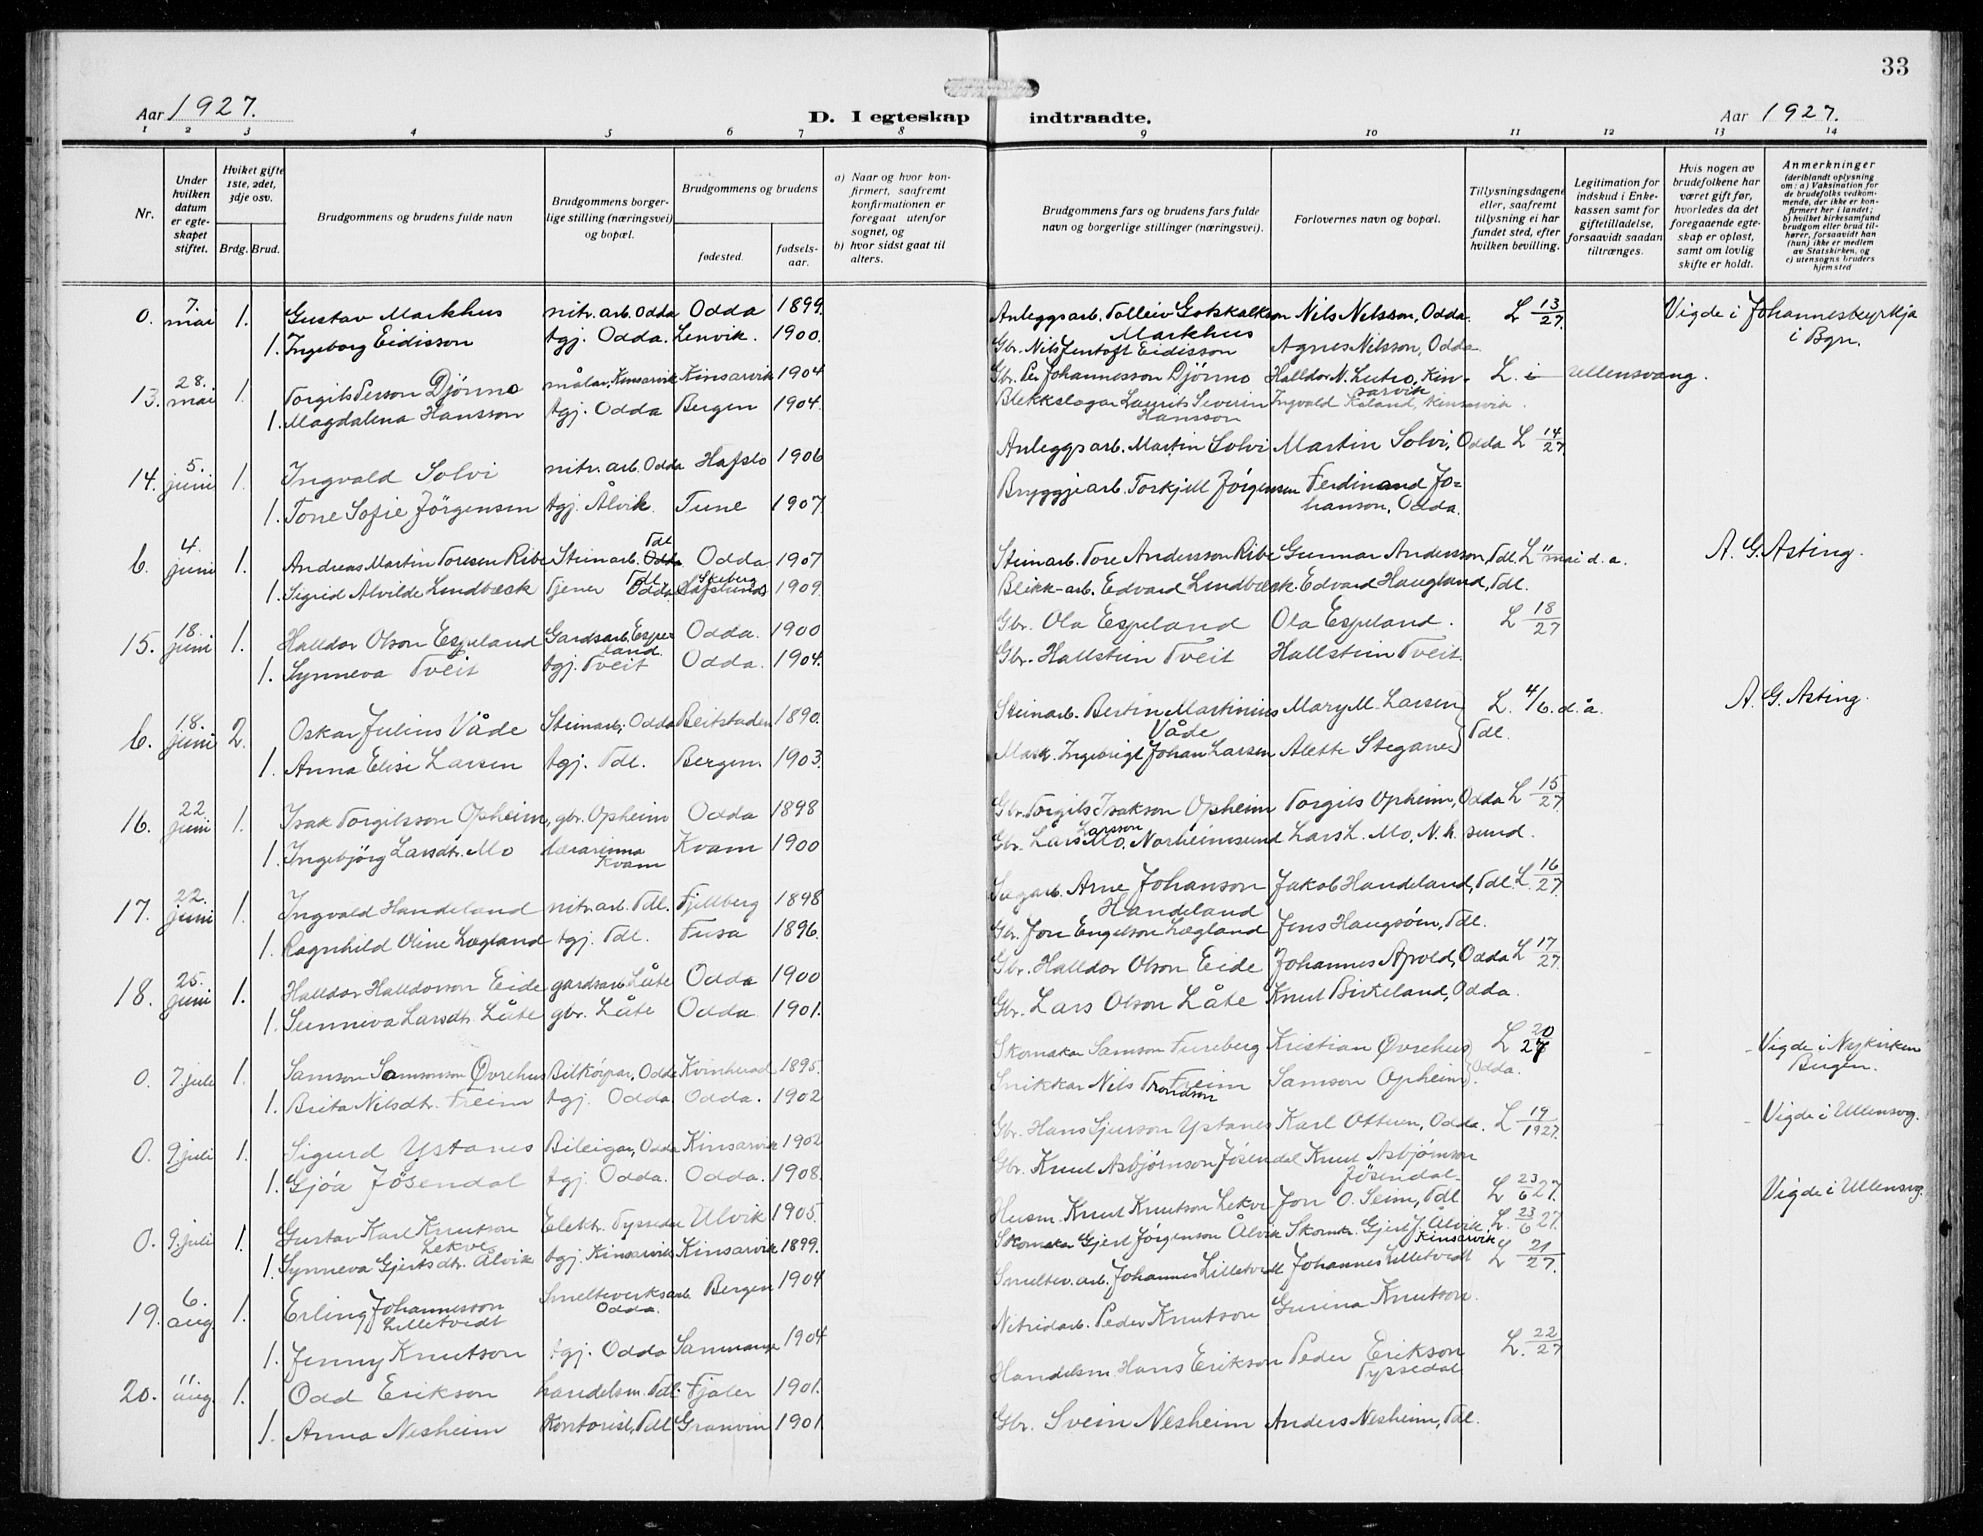 33
Aar 1927. D. I egteskap indtraadte. Aar 1927.
1 2 3 4 5 6 7 8 9 10 11 12 13 14
Nr.
Under hvilken datum er egte-skapet stiftet.
Hviket gifte 1ste, 2det, 3dje osv.
Brdg. Brud.
Brudgommens og brudens fulde navn
Brudgommens borger-lige stilling (næringsvei) og bopæl.
Brudgommens og brudens
fødested.
fødsels-aar.
a) Naar og hvor kon-firmert, saafremt konfirmationen er foregaat utenfor sognet, og
b) hvor sidst gaat til alters.
Brudgommens fars og brudens fars fulde navn og borgerlige stillinger (næringsvei).
Forlovernes navn og bopæl.
Tillysningsdagene eller, saafremt tillysning ei har fundet sted, efter hvilken bevilling.
Legitimation for indskud i Enke-kassen samt for giftetilladelse, forsaavidt saadan tiltrænges.
Hvis nogen av brudefolkene har været gift før, hvorledes da det foregaaende egte-skap er opløst, samt om lovlig skifte er holdt.
Anmerkninger (deriblandt oplysning om: a) Vaksination for de brudefolks vedkom-mende, der ikke er kon-firmert her i landet; b) hvilket kirkesamfund brudgom eller brud til-hører, forsaavidt han (hun) ikke er medlem av Statskirken, og c) utensogns bruders hjemsted
0. 7. mai 1. Gustav Markhus nitr. arb. Odda Odda 1899. Anleggsarb. Tolleiv Gotskalkson Markhus Nils Nilsson, Odda. L 13/27. Vigde i Johanneskyrkja i Bgn.
1. Ingeborg Eidisson tgj. Odda. Lenvik. 1900. Gbr. Nils Jentoft Eidisson Agnes Nilsson, Odda
13. 28. mai 1. Torgils Person Djönno målar, Kinsarvik Kinsarvik 1904 Gbr. Per Johannesson Djönno Halldor N. Lutro, Kinsarvik L. i Ullensvang.
1. Magdalena Hansson tgj. Odda Bergen 1904. Blekkslagar Laurits Severin Hansson Ingvald Kaland, Kinsarvik.
14. 5. juni 1. Ingvald Solvi nitr. arb. Odda Hafslo 1906 Anleggsarb. Martin Solvi Martin Solvi, Odda L 14/27.
1. Tone Sofie Jörgensen tgj. Ålvik. Tune 1907 Bryggjearb. Torkjell Jörgensen Ferdinand Jo=hanson, Odda.
6. 4. juni 1. Andreas Martin Toresen Ribe Steinarb. Odda Tdl Odda 1907 Steinarb. Tore Andersson Ribe Gunnar Andersson, Tdl. L 11 mai d. a. A. G. Asting.
1. Sigrid Alvilde Lindbæck Tjener Odda Tdl Hafslund Skeberg 1909. Blikk-arb. Edvard Lindbæck. Edvard Haugland, Tdl.
15. 18. juni 1. Halldor Olson Espeland Gardsarb. Espeland Odda. 1900 Gbr. Ola Espeland Ola Espeland. L 18/27
1. Synneva Tveit tgj. Tveit Odda. 1904. Gbr. Hallstein Tveit Hallstein Tveit.
6. 18. juni 2. Oskar Julius Våde Steinarb, Odda Beitstaden 1890. Steinarb. Bertin Martinius Våde Mary M. Larsen L. 4/6. d.å. A. G. Asting.
1. Anna Elise Larsen tgj. Tdl. Bergen. 1903. Mask. Ingebrigt Johan Larsen Alette Stegane Tdl.
16. 22. juni 1. Isak Torgilsson Opheim, gbr. Opheim Odda 1898 Gbr. Torgils Isakson Opheim Torgils Opheim, Odda L 15/27.
1. Ingebjörg Larsdtr. Mo lærarinna Kvam Kvam 1900 Gbr. Lars Larsson Mo, Norheimsund Lars L. Mo, N.h.sund.
17. 22. juni 1. Ingvald Handeland nitr. arb. Tdl. Fjellberg 1898 Sagarb. Arne Johanson Handeland Jakob Handeland, Tdl. L. 16/27.
1. Ragnhild Oline Lægland tgj. Tdl. Fusa 1896. Gbr. Jon Engelson Lægland Jens Haugsöin, Tdl.
18. 25. juni 1. Halldor Halldorson Eide gardsarb. Låte Odda 1900 Gbr. Halldor Olson Eide Johannes Apold, Odda L 17/27.
1. Sunniva Larsdtr. Låte gbr. Låte Odda 1901. Gbr. Lars Olson Låte Knut Birkeland, Odda.
0. 7 juli 1. Samson Samsonson Øvrehus Bilköyrar, Odda Kvinherad 1895. Skomakar Samson Fureberg Kristian Øvrehus L 20/27 Vigde i Nykirken Bergen.
1. Brita Nilsdtr. Freim tgj. Odda Odda. 1902 Snikkar Nils Trondson Freim Samson Opheim Odda.
0. 9 juli 1. Sigurd Ystanes Bileigar, Odda Kinsarvik 1902 Gbr. Hans Sjurson Ystanes Karl Ottun, Odda. L 19/1927. Vigde i Ullensvg.
1. Gjöa Jösendal tgj. Odda. Odda. 1908. Gbr. Knut Asbjörnson Jösendal Knut Asbjörnson Jösendal
0. 9. juli 1. Gustav Karl Knutson Lekve Elektr. Tyssedal Ulvik 1905. Husm. Knut Knutson Lekve Jon O. Seim, Tdl. L 23/6 27. Vigde i Ullensvg.
1. Synneva Gjertsdtr. Ålvik tgj. Kinsarvik Kinsarvik 1899. Skomakar Gjert Jörgenson Ålvik Skomk. Gjert J. Ålvik Kinsarvik L. 23/6 27.
19. 6. aug. 1. Erling Johannesson Lilletvedt Smelteverksarb. Odda. Bergen 1904 Smeltev. arb. Johannes Lilletvedt Johannes Lilletvedt L 21/27.
1. Jenny Knutson tgj. Odda Samnanger 1904 Nitridarb. Peder Knutson Gurina Knutson.
20. 11. aug. 1. Odd Erikson handelsm. Tdl. Fjaler 1901. Handelsm. Hans Erikson Peder Erikson Tyssedal L. 22/27
1. Anna Nesheim Kontorist, Tdl Granvin 1901. Gbr. Svein Nesheim Anders Nesheim, Tdl.